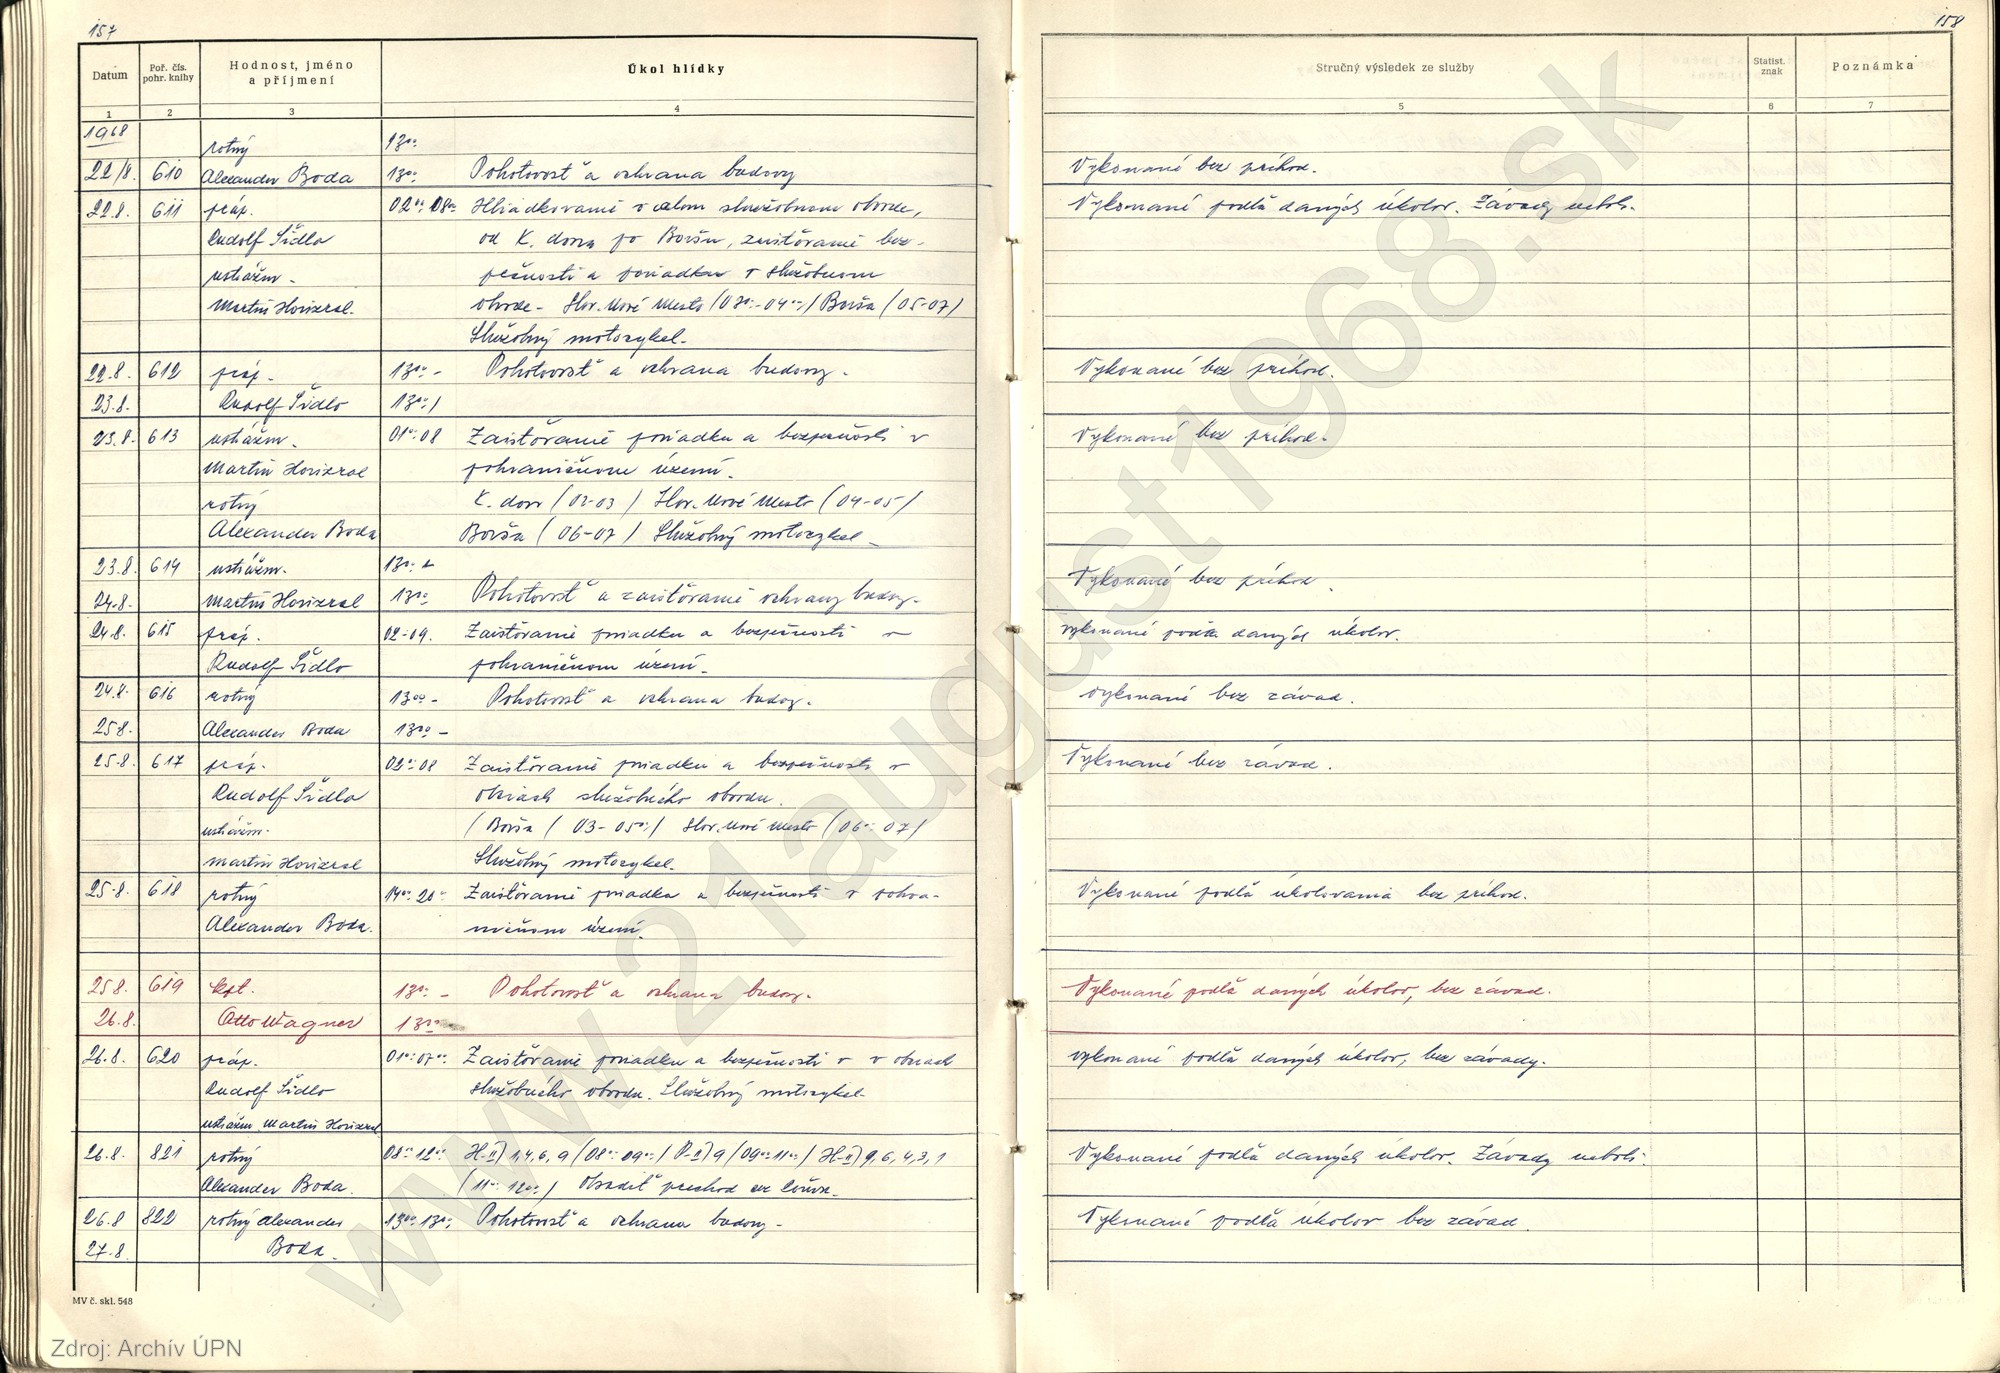 157
Datum
Poř. čís. pohr. knihy
Hodnost, jméno a příjmení
Úkol hlídky
1 2 3 4
1968
rotný 13⁰⁰
22/8. 610 Alexander Boda 13⁰⁰ Pohotovosť a ochrana budovy
22.8. 611 práp. 02⁰⁰ 08⁰⁰ Hliadkovanie v celom služobnom obvode,
Rudolf Šidlo od K. dvora po Boršu, zaisťovanie bez-
nstrážm. pečnosti a poriadku v služobnom
Martin Horizral. obvode - Slov. Nové Mesto (03⁰⁰-04⁰⁰) Borša (05-07)
Služobný motocykel.
22.8. 612 práp. 13⁰⁰ - Pohotovosť a ochrana budovy.
23.8. Rudolf Šidlo 13⁰⁰/
23.8. 613 nstrážm. 01⁰⁰-08 Zaisťovanie poriadku a bezpečnosti v
Martin Horizral pohraničnom území.
rotný K. dvor (02-03) Slov. Nové Mesto (04-05)
Alexander Boda Borša (06-07) Služobný motocykel -
23.8. 614 nstrážm. 13⁰⁰-
24.8. Martin Horizral 13⁰⁰ Pohotovosť a zaisťovanie ochrany budovy.
24.8. 615 práp. 02-09. Zaisťovanie poriadku a bezpečnosti v
Rudolf Šidlo pohraničnom území.
24.8. 616 rotný 13⁰⁰ - Pohotovosť a ochrana budovy.
25.8. Alexander Boda 13⁰⁰ -
25.8. 617 práp. 02⁰⁰-08 Zaisťovanie poriadku a bezpečnosti v
Rudolf Šidlo obciach služobného obvodu.
nstrážm. (Borša (03-05⁰⁰) Slov. Nové Mesto (06⁰⁰-07)
Martin Horizral Služobný motocykel.
25.8. 618 rotný 14⁰⁰-20⁰⁰ Zaisťovanie poriadku a bezpečnosti v pohra-
Alexander Boda. ničnom území.
25.8. 619 kpt. 13⁰⁰ - Pohotovosť a ochrana budovy.
26.8. Otto Wagner 13⁰⁰
26.8. 620 práp. 01⁰⁰-07⁰⁰ Zaisťovanie poriadku a bezpečnosti v v obciach
Rudolf Šidlo služobného obvodu. Služobný motocykel
nstrážm. Martin Horizral
26.8. 821 rotný 08⁰⁰-12⁰⁰ H-II) 1,4,6,9 (08⁰⁰-09⁰⁰) P-I) 9 (09⁰⁰-11⁰⁰) H-II) 9,6,4,2,1
Alexander Boda. (11⁰⁰-12⁰⁰) Obsadiť prechod
26.8 822 rotný Alexander 13⁰⁰-13⁰⁰ Pohotovosť a ochrana budovy -
27.8. Boda.
MV č. skl. 548
158
Stručný výsledek ze služby
Statist. znak
Poznámka
5 6 7
Vykonané bez príhod.
Vykonané podľa daných úkolov. Závady neboli.
Vykonané bez príhod.
Vykonané bez príhod.
Vykonané bez príhod.
vykonané podľa daných úkolov.
vykonané bez závad.
Vykonané bez závad.
Vykonané podľa úkolovania bez príhod.
Vykonané podľa daných úkolov, bez závad.
vykonané podľa daných úkolov, bez závady.
Vykonané podľa daných úkolov. Závady neboli.
Vykonané podľa úkolov bez závad.
www.21august1968.sk
Zdroj: Archív ÚPN